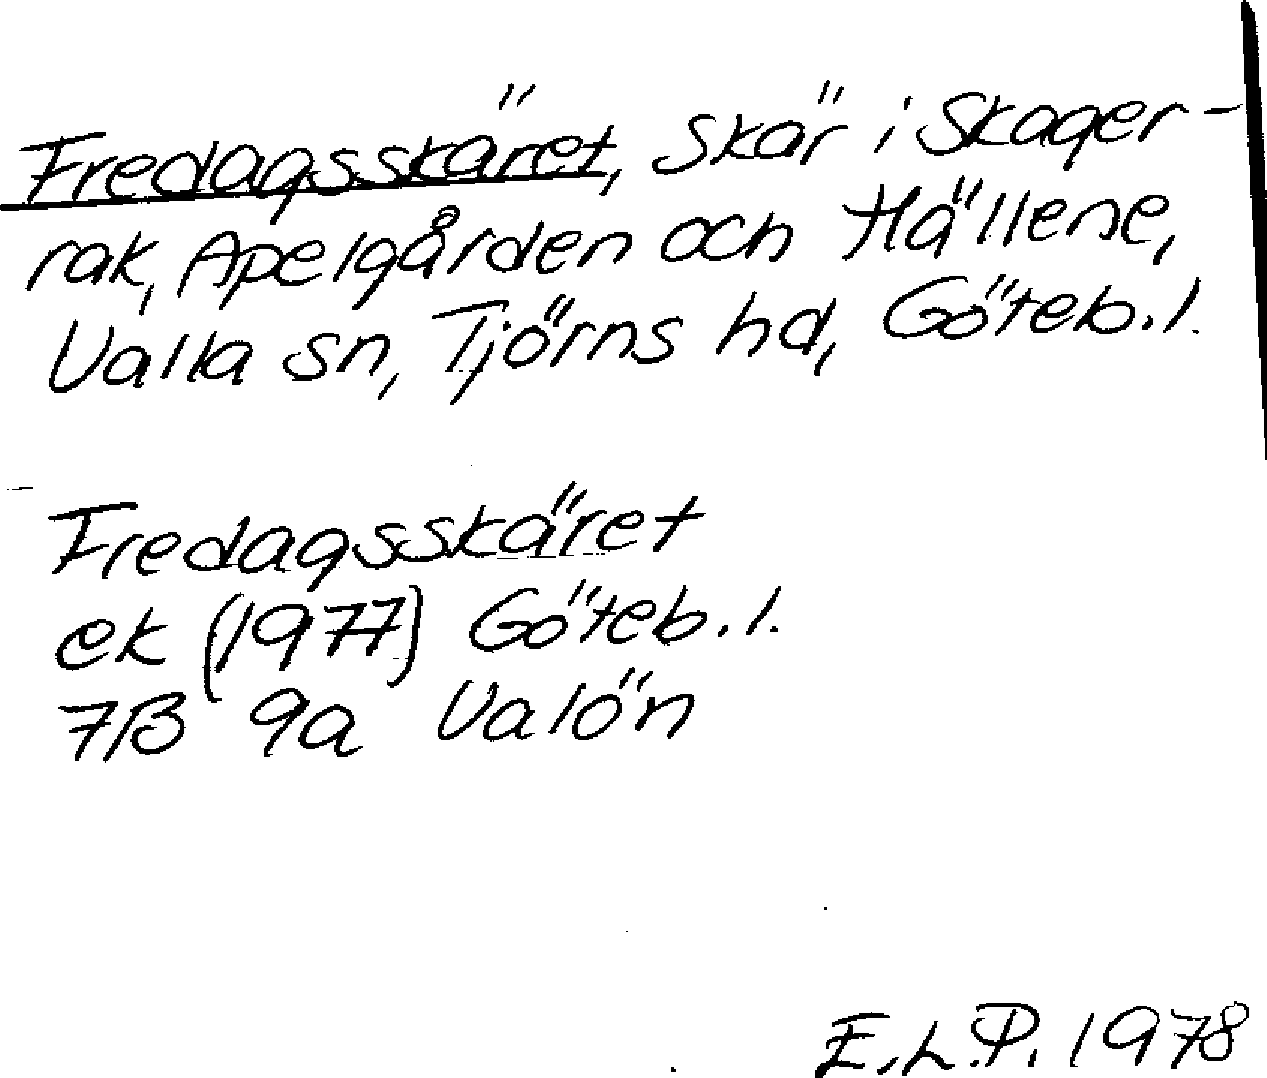 Fredagsskäret, skär i Skager-
rak, Apelgården och Hällene,
Valla sn, Tjörns hd, Göteb.l.
Fredagsskäret
ek (1977) Göteb.l.
7B 9a Valön
E.L.P. 1978